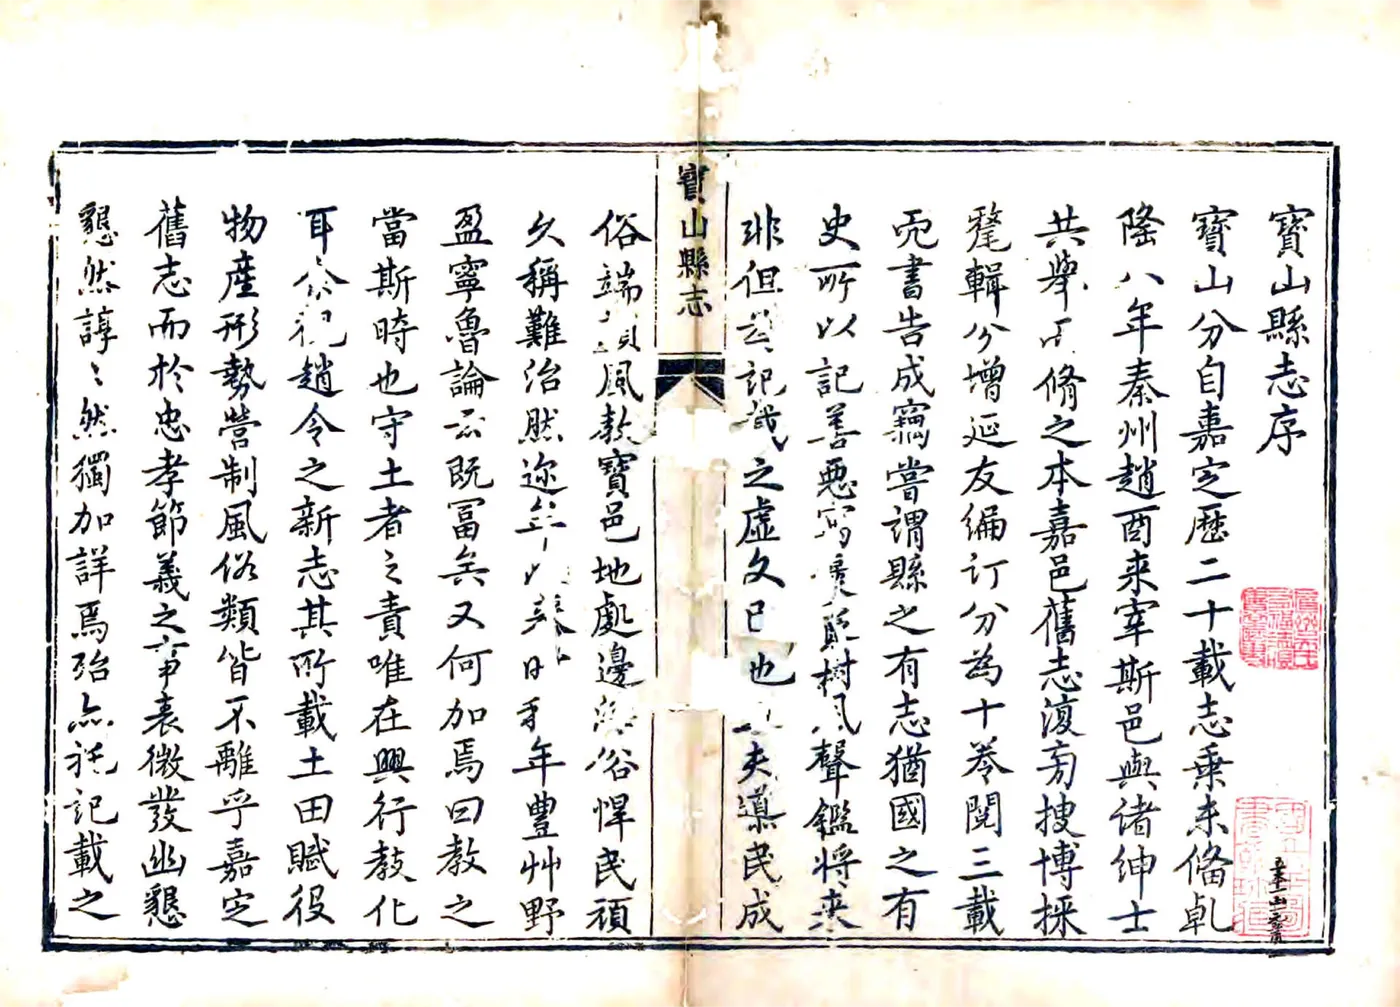 寶山縣志序
寶山分自嘉定歷二十載志乗未脩乹
隆八年秦州趙酉来宰斯邑與諸紳士
共舉而脩之本嘉邑舊志復旁搜博採
氂輯分增延友編订分為十卷閱三載
而書告成竊嘗謂縣之有志猶國之有
史所以記善惡寓褒貶樹風聲鑑将来
非但記之虛文已也夫導民成
寶山縣志
俗端風教寶邑地處邊俗悍民頑
久稱難治然迩年日年豐艸野
盈寧魯論云既冨矣又何加焉曰教之
當斯時也守土者之責唯在興行教化
耳今視趙令之新志其所載土田賦役
物產形勢營制風俗類皆不離乎嘉定
舊志而於忠孝節義之事表微發幽懇
懇然諄〻然獨加詳焉殆亦託記載之